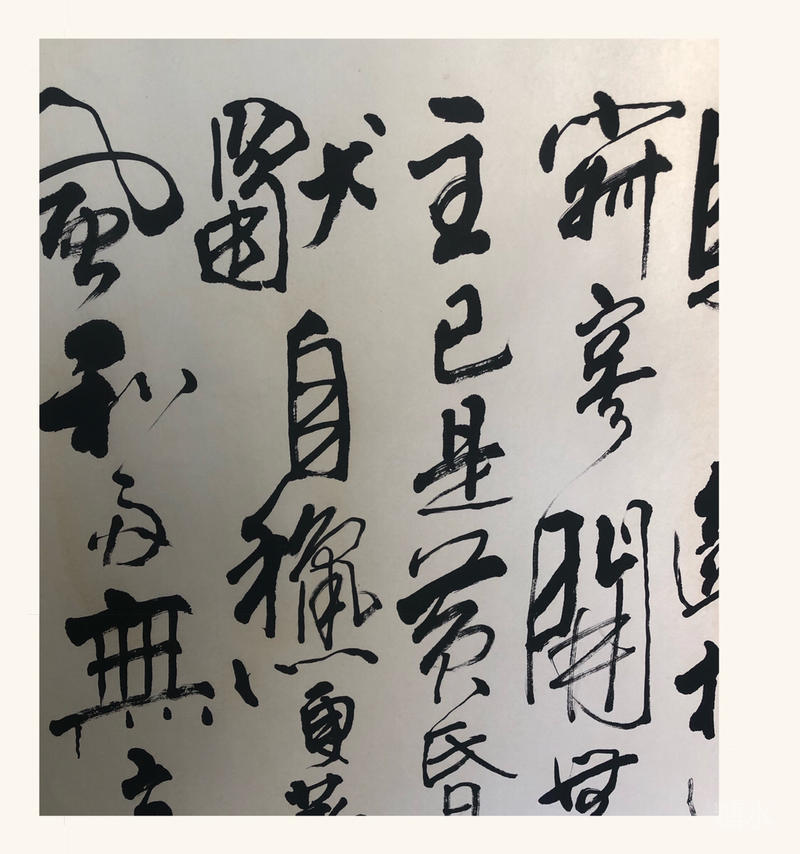 寂寞開無
主已是黃昏
獨自愁更著
風和雨無